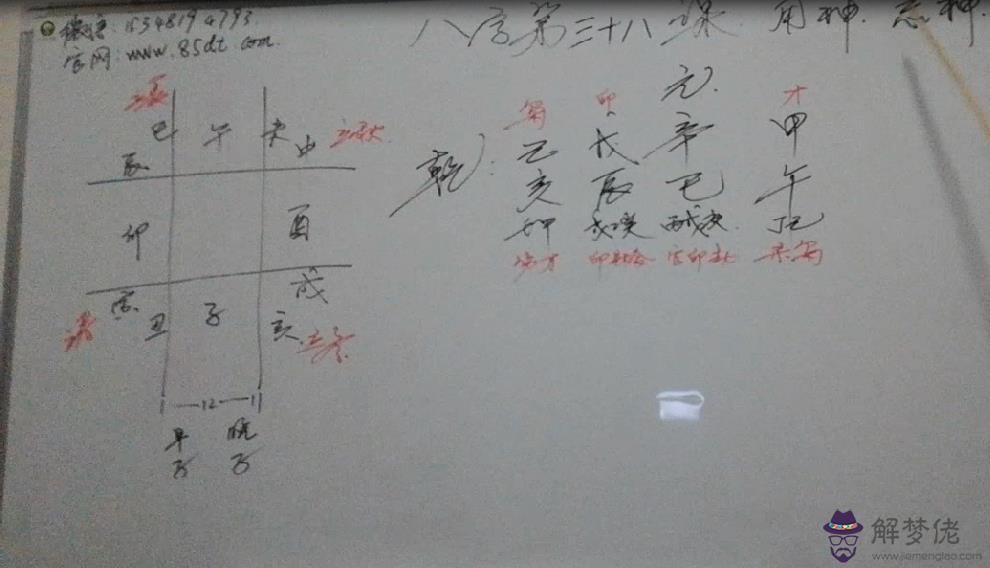 官网:www.85dt.com.
八字第三十八课 用神. 忌神.
元
枭 印 才
乾: 己 戊 辛 甲
亥 辰 巳 午
壬甲 戊乙癸 丙戊庚 丁己
巳 午 未 申
辰
立秋
卯 酉
寅 丑 子 亥 戌
立冬
1—12—1
早子 晚子
解梦佬
www.jiemenglao.com